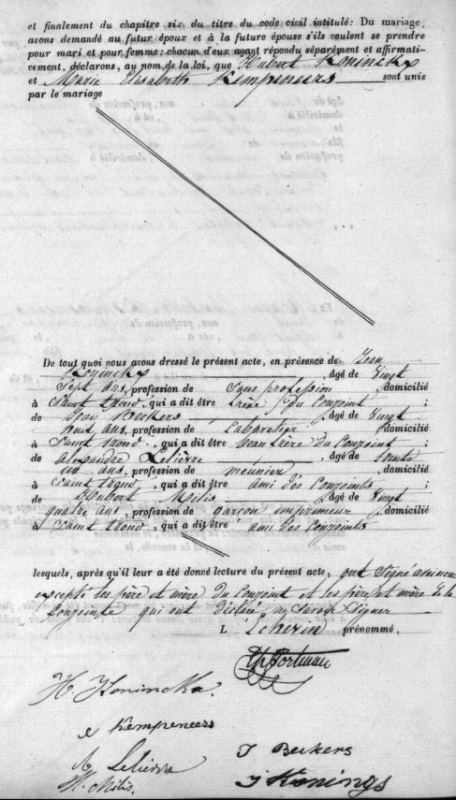 et finalement du chapitre six du titre du code civil intitulé: Du mariage,
avons demandé au futur époux et à la future épouse s'ils veulent se prendre
pour mari et pour femme: chacun d'eux ayant répondu séparément et affirmati-
vement, déclarons, au nom de la loi, que Hubert Koninckx
et Marie Elisabeth Kempeneers sont unis
par le mariage
De tout quoi nous avons dressé le présent acte, en présence de Jean
Koninckx, âgé de vingt
sept ans, profession de sans profession domicilié
à Saint Trond, qui a dit être frère du Conjoint ;
de Jean Beckers, âgé de vingt
huit ans, profession de Cabaretier domicilié
à Saint Trond, qui a dit être beau frère du Conjoint ;
de Alexandre Lelièvre, âgé de trente
ans, profession de meunier, domicilié
à Saint Trond, qui a dit être ami des Conjoints ;
de Hubert Milis, âgé de vingt
quatre ans, profession de garçon imprimeur domicilié
à Saint Trond, qui a dit être ami des Conjoints
lesquels, après qu'il leur a été donné lecture du présent acte, ont signé avec nous
excepté les père et mère du Conjoint et les père et mère de la
Conjointe qui ont déclaré ne savoir signer
L'Echevin prénommé,
H. Koninckx
e Kempeneers
A Lelièvre
J Beckers
H. Milis
J Konings